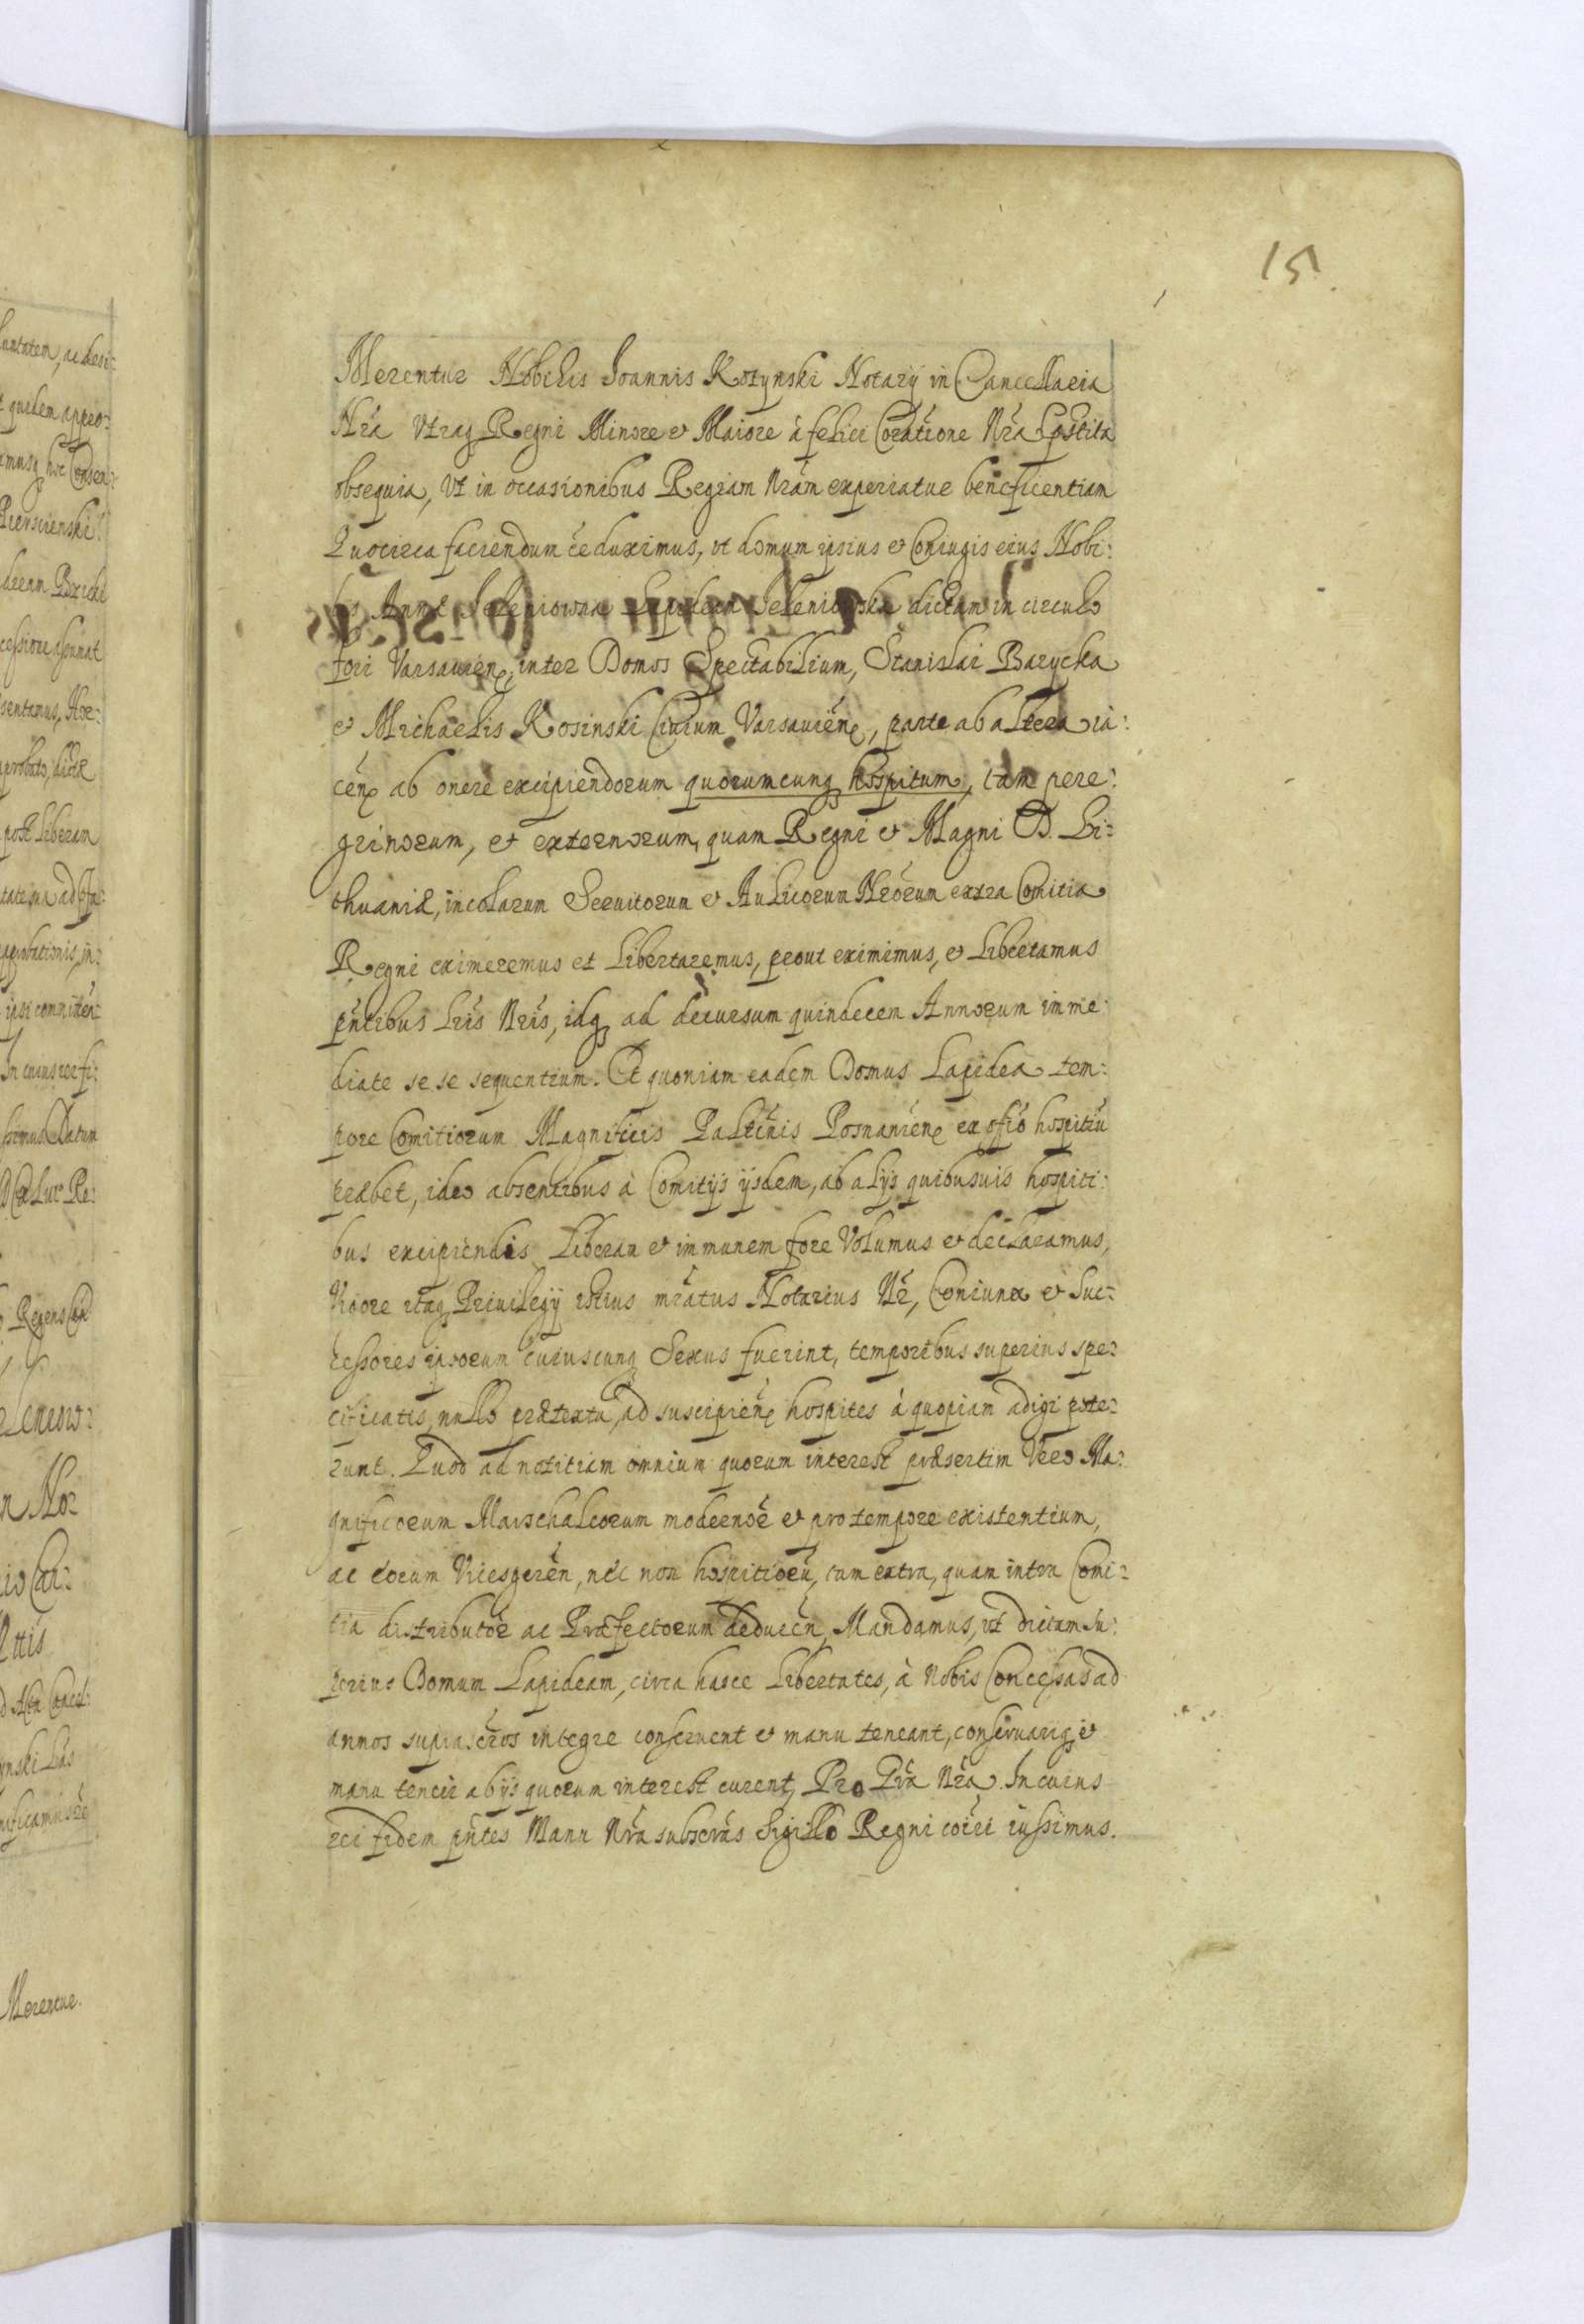 15
Merentur Nobilis Ioannis Kotynski Notarij in Cancellaria
Nr̃a Utraq Regni Minore et Maiore à felici Cor̃atione Nr̃a
obsequia, Ut in occasionibus Regiam Nr̃am experiatur beneficentiam
Quocirca faciendum ẽe duximus, ut domum ipsius et Coniugis eius Nobi:
lis Annæ dictam in circulo
fori Varsavien, inter Domos Spectabilium, Stanislai Barycka
et Michaelis Kosinski Civium Varsavień, parte ab altera ia:
ceñ ab onere excipiendorum quorumcunq hospitum, tam pere:
grinorum, et externorum, quam Regni et Magni D. Li:
thuaniæ, incolarum Servitorum et Aulicorum Nr̃orum extra Comitia
Regni eximeremus et Libertaremus, prout eximimus, et Libertamus
pñtibus Lr̃is Nr̃is, idq ad decursum quindecem Annorum imme
diate se se sequentium. Et quoniam eadem Domus Lapidea tem:
pore Comitiorum Magnificis Palatiñis Posnanień ex offõ hospitiũ
præbet, ideo absentibus à Comitijs ijsdem, ab alijs quibusuis hospiti:
bus excipiendis Liberam et immunem fore Volumus et declaramus,
Vigore itaq Privilegij istius mr̃atus Notarius Nr̃, Coniunx et Suc:
cessores ipsorum cuiuscunq Sexus fuerint, temporibus superius spe:
cificatis, nullo prætextu, ad suscipień hospites à quopiam adigi pote:
runt. Quod ad notitiam omnium quorum interest præsertim Vero Ma:
gnificorum Marschalcorum modernor̃ et pro tempore existentium,
ac eorum Vicesgereñ, nec non hospitiorũ, tam extra, quam intra Comi:
tia distributor̃ ac Præfectorum deduceñ, Mandamus, ut dictam Su:
perius Domum Lapideam, circa hasce Libertates, à Nobis Concessas ad
annos suprascr̃os integre conservent et manu teneant, conservariq et
manu teneri ab ijs quorum interest curent, Pro Gr̃a Nr̃a. In cuius
rei fidem pñtes Manu Nr̃a subscr̃as Sigillo Regni coir̃i iussimus.